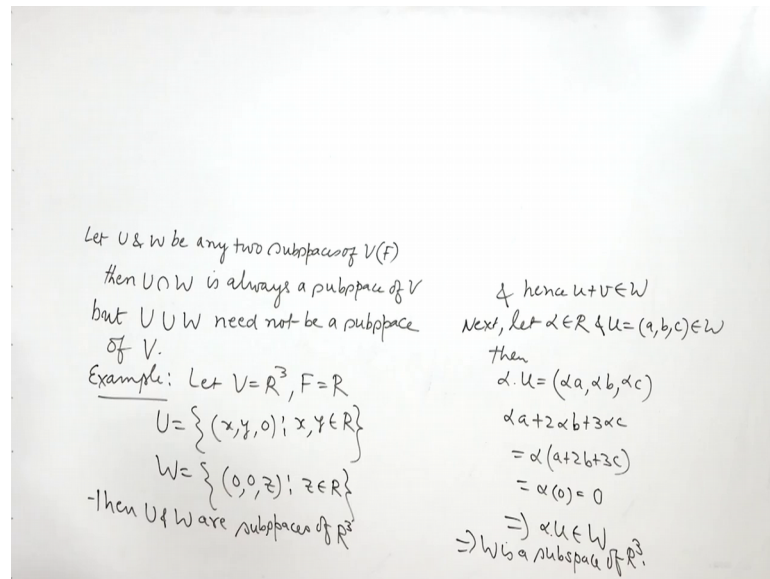 Let U & W be any two subspaces of V(F)
then U∩W is always a subspace of V
but U∪W need not be a subspace
of V.
Example: Let V=R³, F=R
U={(x,y,0); x,y∈R}
W={(0,0,z); z∈R}
Then U & W are subspaces of R³
& hence u+v∈W
Next, let α∈R & u=(a,b,c)∈W
then
α.u=(αa,αb,αc)
αa+2αb+3αc
=α(a+2b+3c)
=α(0)=0
⇒ α.u∈W
⇒ W is a subspace of R³.